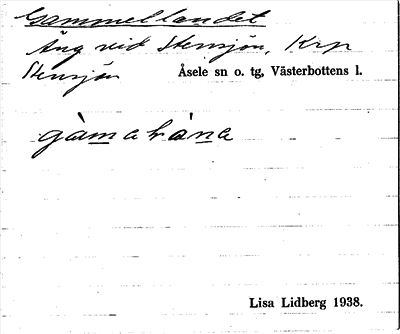 Gammellandet
Äng vid Stensjön, Krp
Stensjön Åsele sn o. tg, Västerbottens l.
Lisa Lidberg 1938.